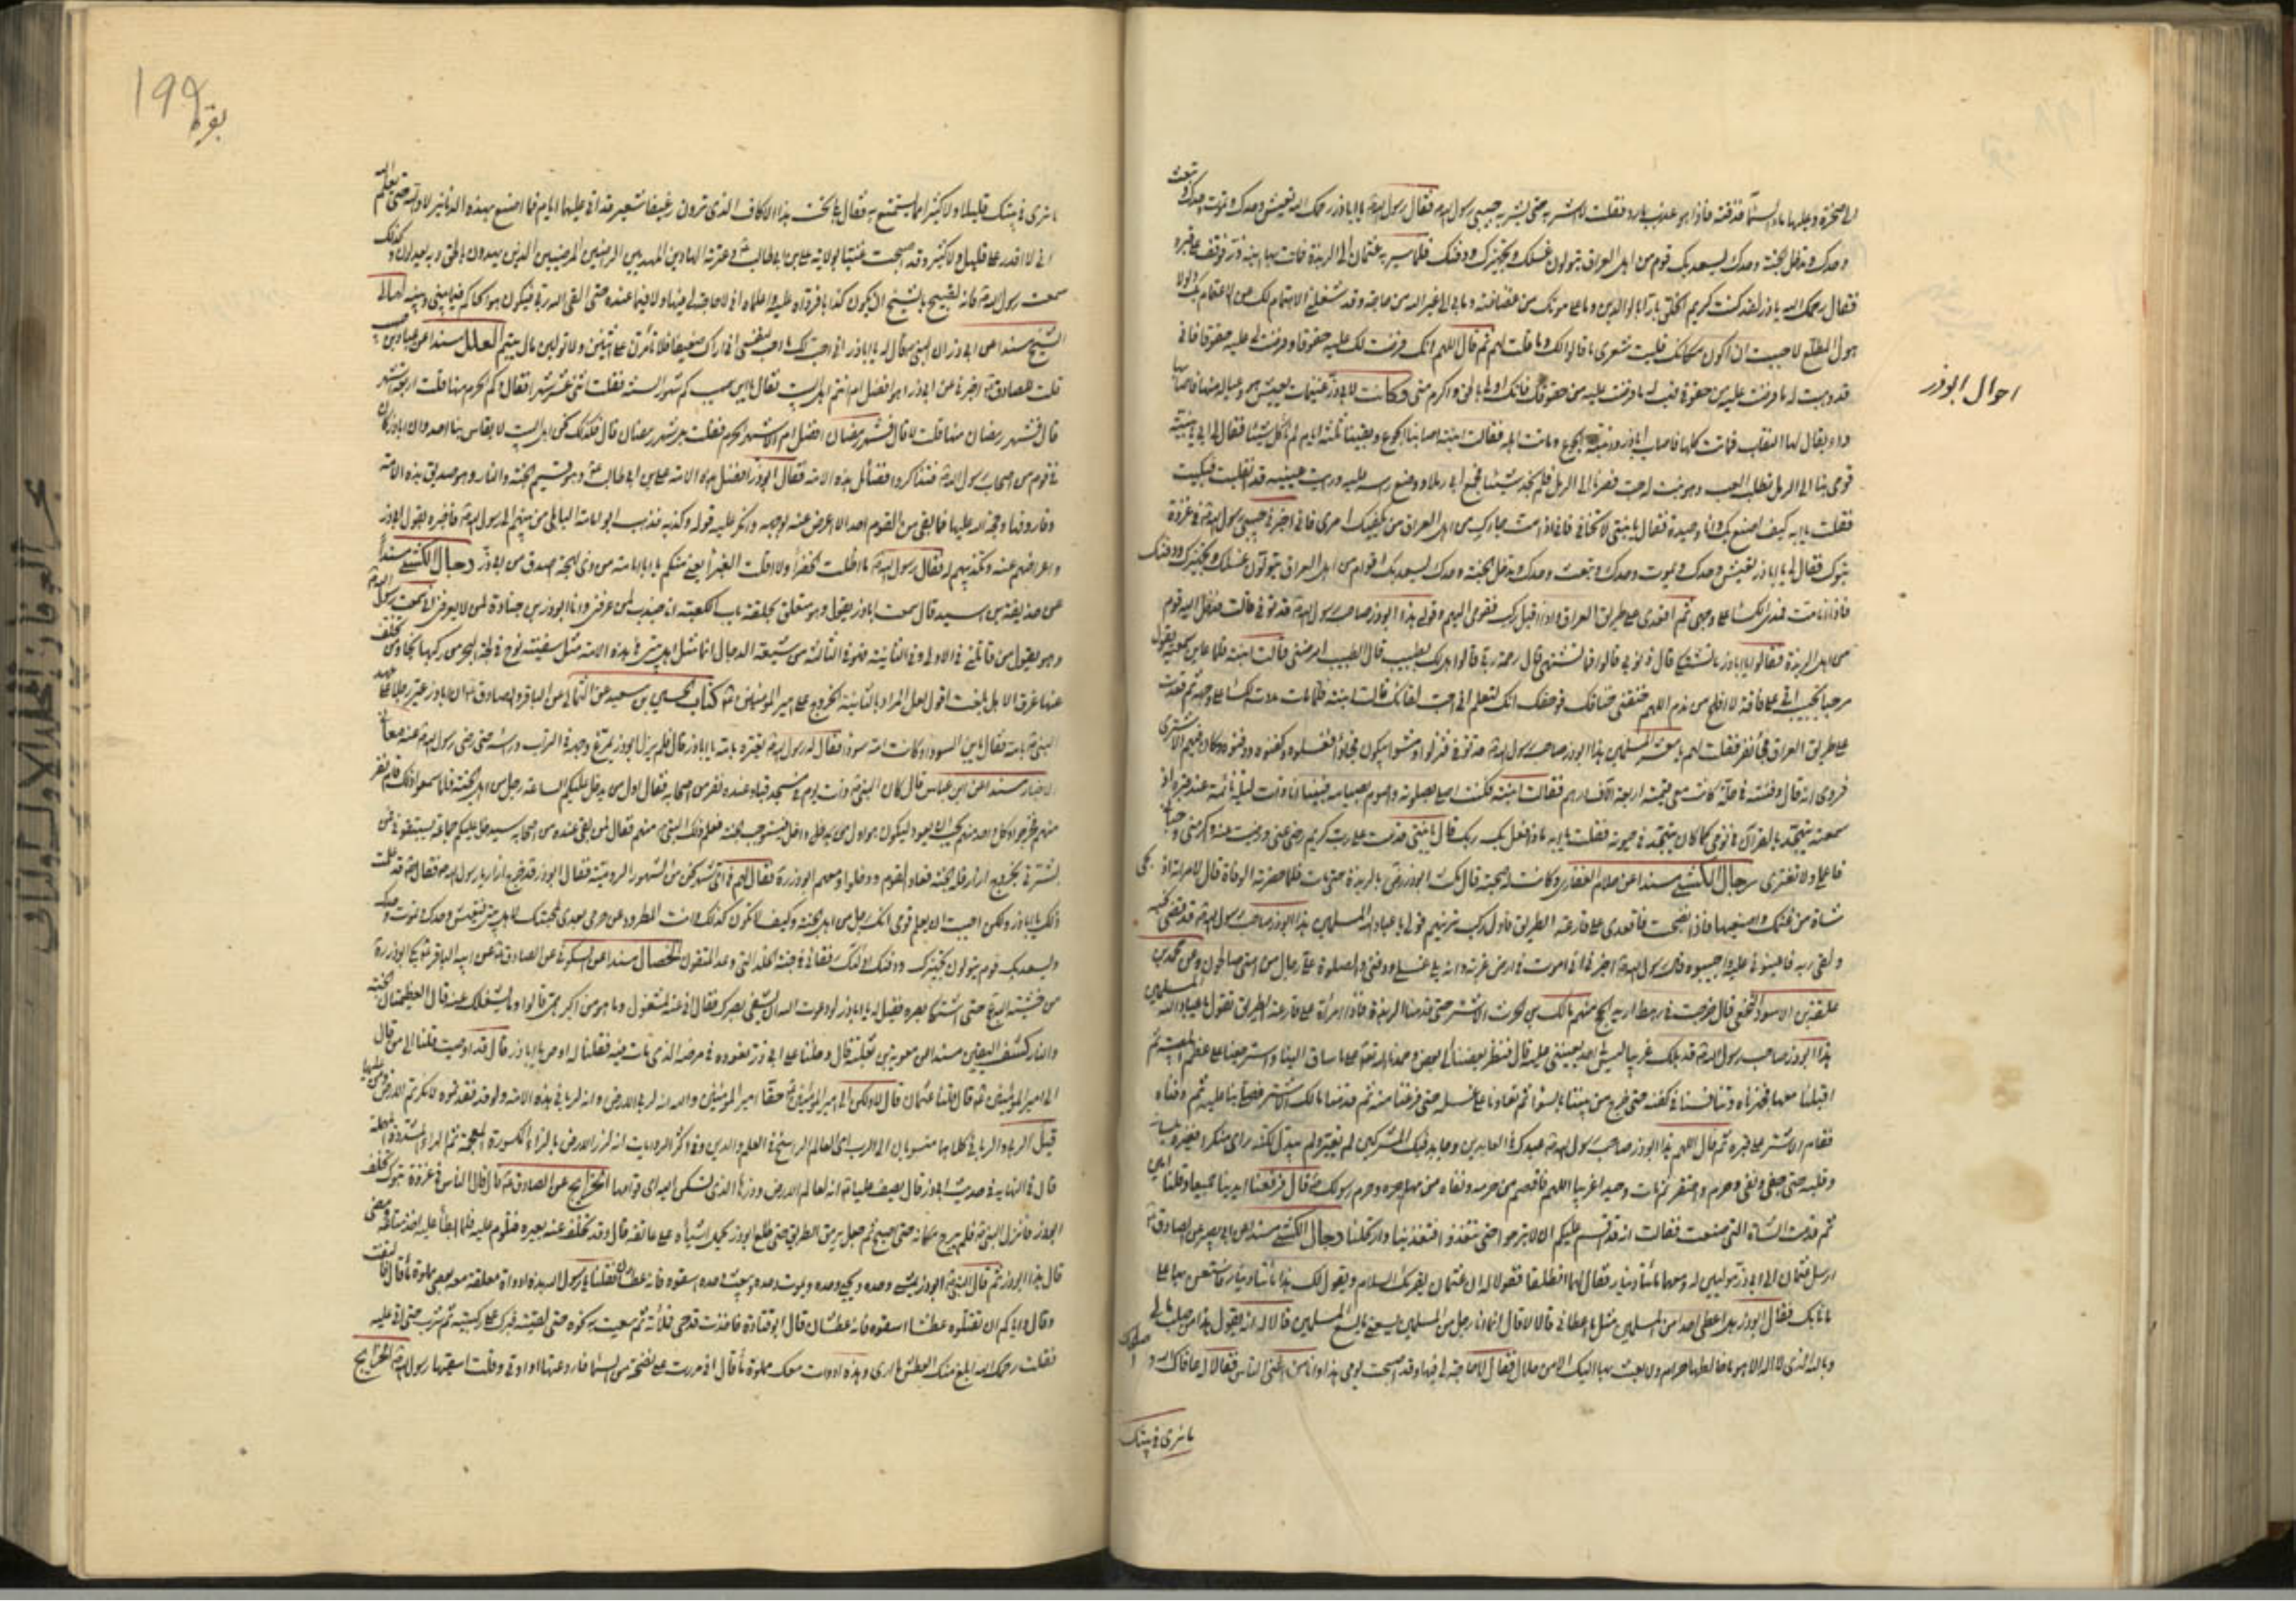 الى صخرة وعليها ماء السماء فذقته فاذا هو عذب بارد فقلت لا اشربه حتى يشربه حبيبي رسول الله فقال رسول الله يا اباذر رحمك الله تعيش وحدك وتموت وحدك وتبعث
وحدك وتدخل الجنة وحدك يسعد بك قوم من اهل العراق يتولون غسلك وتجهيزك ودفنك فلما سير به عثمان الى الربذة فمات بها ابنه ذر فوقف على قبره
فقال رحمك الله يا ذر لقد كنت كريم الخلق بارا بالوالدين وما على في موتك من غضاضة وما بي الى غير الله من حاجة وقد شغلني الاهتمام لك عن الاغتمام بك ولولا
هول المطلع لاحببت ان اكون مكانك فليت شعري ما قالوا لك وما قلت لهم ثم قال اللهم انك فرضت لك عليه حقوقا وفرضت لي عليه حقوقا فاني
قد وهبت له ما فرضت عليه من حقوقي فهب له ما فرضت عليه من حقوقك فانك اولى بالحق واكرم مني وكانت لابي ذر غنيمات يعيش هو وعياله منها فاصابها
داء يقال لها النقاب فماتت كلها فاصاب اباذر وابنته الجوع وماتت اهله فقالت ابنته اصابنا الجوع وبقينا ثلثة ايام لم ناكل شيئا فقال لي ابي يا بنية
قومي بنا الى الرمل نطلب القت وهو نبت له حب فصرنا الى الرمل فلم نجد شيئا فجمع ابي رملا ووضع راسه عليه ورايت عينيه قد انقلبت فبكيت
فقلت يا ابه كيف اصنع بك وانا وحيدة فقال يا بنتي لا تخافي فاني اذا مت جاءك من اهل العراق من يكفيك امري فاني اخبرني حبيبي رسول الله في غزوة
تبوك فقال لي يا اباذر تعيش وحدك وتموت وحدك وتبعث وحدك وتدخل الجنة وحدك يسعد بك اقوام من اهل العراق يتولون غسلك وتجهيزك ودفنك
فاذا انا مت فمدي الكساء على وجهي ثم اقعدي على طريق العراق فاذا اقبل ركب فقومي اليهم وقولي هذا ابوذر صاحب رسول الله قد توفي قالت فدخل اليه قوم
من اهل الربذة فقالوا يا اباذر ما تشتكي قال ذنوبي قالوا فما تشتهي قال رحمة ربي قالوا هل لك بطبيب قال الطبيب امرضني قالت ابنته فلما عاين سمعته يقول
مرحبا بحبيب اتى على فاقة لا افلح من ندم اللهم خنقني خناقك فوحقك انك لتعلم اني احب لقائك قالت ابنته فلما مات مددت الكساء على وجهه ثم قعدت
على طريق العراق فجاء نفر فقلت لهم يا معشر المسلمين هذا ابوذر صاحب رسول الله قد توفي فنزلوا ومشوا يبكون فجاؤا فغسلوه وكفنوه ودفنوه وكان فيهم الاشتر
فروى انه قال دفنته في حلة كانت معي قيمتها اربعة الاف درهم فقالت ابنته فكنت اصلي بصلوته واصوم بصيامه فبينا انا ذات ليلة نائمة عند قبره اذ
سمعته يتهجد بالقرآن في نومي كما كان يتهجد في حيوته فقلت يا ابه ماذا فعل بك ربك قال يا بنتي قدمت على رب كريم رضي عني ورضيت عنه واكرمني وحباني
فاعملي ولا تغتري رجال الكشي مسندا عن حلام الغفاري وكانت له صحبة قال مكث ابوذر بالربذة حتى مات فلما حضرته الوفاة قال لامراته اذبحي
شاة من غنمك واصنعيها فاذا نضجت فاقعدي على قارعة الطريق فاول ركب ترينهم قولي يا عباد الله المسلمين هذا ابوذر صاحب رسول الله قد قضى نحبه
ولقى ربه فاعينوني عليه واجيبوه فان رسول الله اخبرني اني اموت في ارض غربة وانه يلي غسلي ودفني والصلوة علي رجال من امتي صالحون وعن محمد بن
علقمة بن الاسود النخعي قال خرجت في رهط اريد الحج منهم مالك بن الحارث الاشتر حتى قدمنا الربذة فاذا امراة على قارعة الطريق تقول يا عباد الله المسلمين
هذا ابوذر صاحب رسول الله قد هلك غريبا ليس لي احد يعينني عليه قال فنظر بعضنا الى بعض وحمدنا الله تعالى على ما ساق الينا واسترجعنا على عظم المصيبة ثم
اقبلنا معها فجهزناه وتنافسنا في كفنه حتى خرج من بيننا بالسواء ثم تعاونا على غسله حتى فرغنا منه ثم قدمنا مالك الاشتر فصلى بنا عليه ثم دفناه
فقام الاشتر على قبره ثم قال اللهم هذا ابوذر صاحب رسول الله عبدك في العابدين وجاهد فيك المشركين لم يغير ولم يبدل لكنه راى منكرا فغيره بلسانه
وقلبه حتى جفى ونفى وحرم واحتقر ثم مات وحيدا غريبا اللهم فاقصم من حرمه ونفاه من مهاجره وحرم رسولك قال فرفعنا ايدينا جميعا وقلنا امين
ثم قدمت الشاة التي صنعت فقالت انه قد اقسم عليكم ان لا تبرحوا حتى تتغذوا فتغذينا وارتحلنا رجال الكشي مسندا عن ابي بصير عن الصادق
ارسل عثمان الى ابي ذر موليين له ومعهما مائتا دينار فقال لهما انطلقا فقولا له ان عثمان يقرئك السلام ويقول لك هذا مائتا دينار فاستعن بها على
ما نابك فقال ابوذر هل اعطى احدا من المسلمين مثل ما اعطاني قالا لا قال انما انا رجل من المسلمين يسعني ما يسع المسلمين قالا له انه يقول هذا من صلب مالي
وبالله الذي لا اله الا هو ما خالطها حرام ولا بعثت بها اليك الا من حلال فقال لا حاجة لي فيها وقد اصبحت يومي هذا وانا من اغنى الناس فقالا له عافاك الله واصلحك
ما نرى في بيتك
احوال ابوذر
199
بقره
ما نرى في بيتك قليلا ولا كثيرا مما يستمتع به فقال بلى تحت هذا الاكاف الذي ترون رغيفا شعير قد اتى عليهما ايام فما اصنع بهذه الدنانير لا والله حتى يعلم الله
اني لا اقدر على قليل ولا كثير وقد اصبحت غنيا بولاية علي بن ابي طالب وعترته الهادين المهديين الراضين المرضيين الذين يهدون بالحق وبه يعدلون وكذلك
سمعت رسول الله فانه لقبيح بالشيخ ان يكون كذابا فرداها عليه واعلماه اني لا حاجة لي فيها ولا فيما عنده حتى القى الله ربي فيكون هو الحاكم فيما بيني وبينه امالي
الشيخ مسندا عن ابي ذر ان النبي قال له يا اباذر اني احب لك ما احب لنفسي اني اراك ضعيفا فلا تامرن على اثنين ولا تولين مال يتيم العلل مسندا عن عباد بن صهيب
قلت للصادق اخبرني عن ابي ذر اهو افضل ام انتم اهل البيت فقال يا ابن صهيب كم شهور السنة فقلت اثنى عشر شهرا فقال وكم الحرم منها قلت اربعة اشهر
قال فشهر رمضان منها قلت لا قال فشهر رمضان افضل ام الاشهر الحرم فقلت بل شهر رمضان قال فكذلك نحن اهل البيت لا يقاس بنا احد وان اباذر كان
في قوم من اصحاب رسول الله فتذاكروا فضائل هذه الامة فقال ابوذر افضل هذه الامة علي بن ابي طالب وهو قسيم الجنة والنار وهو صديق هذه الامة
وفاروقها وحجة الله عليها فما بقى من القوم احد الا اعرض عنه بوجهه وانكر عليه قوله وكذبه فذهب ابو امامة الباهلي من بينهم الى رسول الله فاخبره بقول ابي ذر
واعراضهم عنه وتكذيبهم له فقال رسول الله ما اظلت الخضراء ولا اقلت الغبراء يعني منكم يا ابا امامة من ذي لهجة اصدق من ابي ذر رجال الكشي مسندا
عن حذيفة بن اسيد قال سمعت اباذر يقول وهو متعلق بحلقة باب الكعبة انا جندب لمن عرفني وانا ابوذر بن جنادة لمن لا يعرفني اني سمعت رسول الله
وهو يقول من قاتلني في الاولى وفي الثانية فهو في الثالثة من شيعة الدجال انما مثل اهل بيتي في هذه الامة مثل سفينة نوح في لجة البحر من ركبها نجا ومن تخلف
عنها غرق الا هل بلغت اقول لعل المراد بالثانية الخروج على امير المؤمنين كتاب الحسين بن سعيد عن الثمالي عن الباقر والصادق ان اباذر عير رجلا على عهد
النبي بامه فقال يا ابن السوداء وكانت امه سوداء فقال له رسول الله تعيره بامه يا اباذر قال فلم يزل ابوذر يمرغ وجهه في التراب وراسه حتى رضى رسول الله عنه معاني
الاخبار مسندا عن ابن عباس قال كان النبي ذات يوم في مسجد قبا وعنده نفر من اصحابه فقال اول من يدخل عليكم الساعة رجل من اهل الجنة فلما سمعوا ذلك قام نفر
منهم فخرجوا وكل احد منهم يحب ان يعود ليكون هو اول من يدخل فيستوجب الجنة فعلم ذلك النبي منهم فقال لمن بقى عنده من اصحابه سيدخل عليكم جماعة يستبقوني فمن
بشرني بخروج اذار فله الجنة فعاد القوم ودخلوا ومعهم ابوذر فقال لهم في اي شهر نحن من الشهور الرومية فقال ابوذر قد خرج اذار يا رسول الله فقال قد علمت
ذلك يا اباذر ولكن احببت ان يعلم قومي انك رجل من اهل الجنة وكيف لا تكون كذلك وانت المطرود عن حرمي بعدي لمحبتك لاهل بيتي فتعيش وحدك وتموت وحدك
ويسعد بك قوم يتولون تجهيزك ودفنك اولئك رفقائي في جنة الخلد التي وعد المتقون الخصال مسندا عن السكوني عن الصادق عن ابيه الباقر بكى ابوذر
من خشية الله حتى اشتكى بصره فقيل له يا اباذر لو دعوت الله ان يشفي بصرك فقال اني عنه لمشغول وما هو من اكبر همي قالوا وما يشغلك عنه قال العظيمتان الجنة
والنار كشف اليقين مسندا عن معوية بن ثعلبة قال دخلنا على ابي ذر نعوده في مرضه الذي مات فيه فقلنا له اوص يا اباذر قال قد اوصيت قلنا الى من قال
الى امير المؤمنين قال قلنا عثمان قال لا ولكن الى امير المؤمنين حقا امير المؤمنين والله انه لربي الارض وانه لرباني هذه الامة ولو قد فقدتموه لانكرتم الارض ومن عليها
قال في النهاية في حديث ابي ذر قال يصف عليا انه لعالم الارض وزرها الذي تسكن اليه اي قوامها الخرائج عن الصادق قال لما قال الناس في غزوة تبوك تخلف
ابوذر فانزل النبي فلم يبرح مكانه حتى اصبح ثم جعل يرمق الطريق حتى طلع ابوذر يحمل اشياءه على عاتقه قال وقد تخلف عنه بعيره فتلوم عليه فلما ابطا عليه اخذ متاعه ومضى
قال هذا ابوذر ثم قال النبي ابوذر يمشي وحده ويحيى وحده ويموت وحده ويبعث وحده اسقوه فانه عطشان فقلنا يا رسول الله هذه اداوة معلقة معه بعصى مملوة ماء قال فالتفت
وقال واياكم ان تقتلوه عطشا اسقوه فانه عطشان قال ابو قتادة فاخذت قدحي فملاته ثم سعيت به نحوه حتى لقيته فبرك على ركبتيه ثم شرب حتى اتى عليه
فقلت رحمك الله ابلغ منك العطش ما ارى وهذه اداوة معك مملوة ماء قال اني مررت على نضحة من السماء فاروعتها اداوتي وقلت اسقيها رسول الله الخرائج